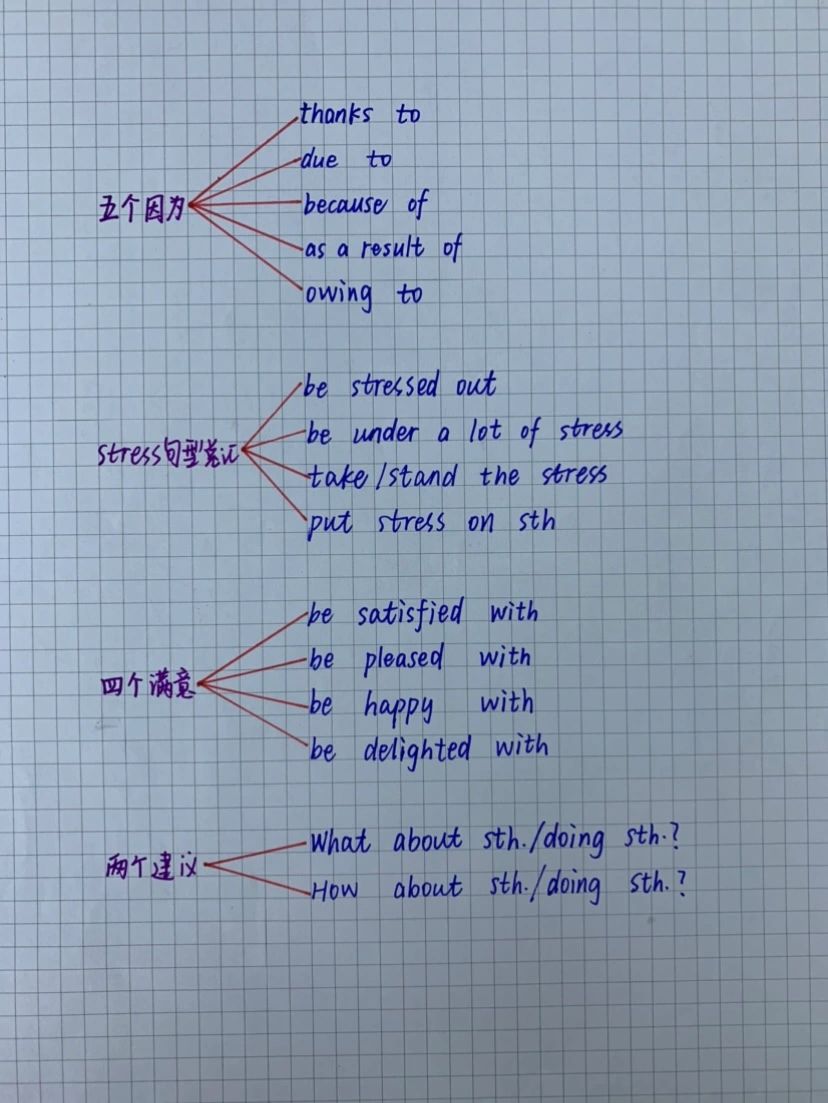 五个因为
thanks to
due to
because of
as a result of
owing to
stress句型总汇
be stressed out
be under a lot of stress
take/stand the stress
put stress on sth
四个满意
be satisfied with
be pleased with
be happy with
be delighted with
两个建议
What about sth./doing sth.?
How about sth./doing sth.?